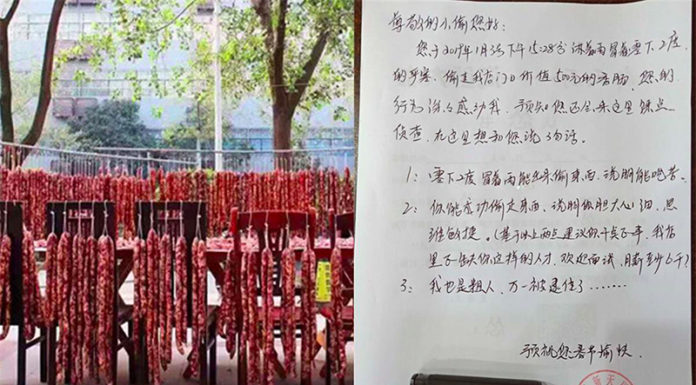 尊敬的小偷您好:
您于2019年1月3号下午15:28分 冒着雨冒着零下2度
的严寒, 偷走我店门口价值500元的香肠, 您的
行为深深感动我, 预知您还会来这里踩点
侦查, 在这里想和您说3句话。
1: 零下2度冒着雨能出来偷东西、说明能吃苦.
2: 你能成功偷走东西、说明你胆大心细, 思
维敏捷。(基于以上两点建议你干点正事, 我店
里正缺你这样的人才, 欢迎面谈, 月薪至少6千)
3: 我也是粗人, 万一被逮住了……
预祝您春节愉快.